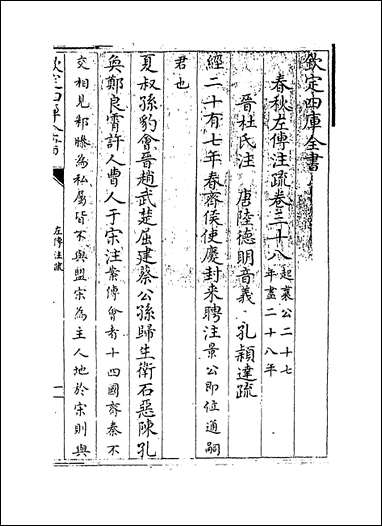 欽定四庫全書
春秋左傳注疏卷三十八起襄公二十七年盡二十八年
晉杜氏注 唐陸德明音義 孔穎達疏
經二十有七年春齊侯使慶封来聘注景公即位通嗣
君也
夏叔孫豹會晉趙武楚屈建蔡公孫歸生衛石惡陳孔
奐鄭良霄許人曹人于宋注案傳會者十四國齊秦不
交相見邾滕為私屬皆不與盟宋為主人地於宋則與
欽定四庫全書
左傳注疏
一